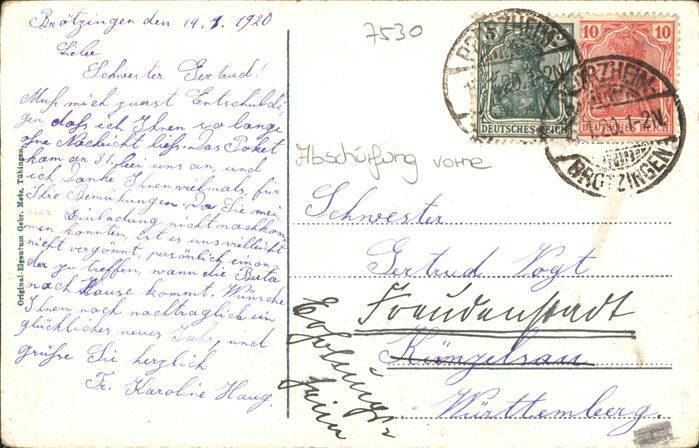 Brötzingen den 14.1.1920
Liebe
Schwester Gertrud!
Muß mich zuerst Entschuldi-
gen daß ich Ihnen so lange
ohne Nachricht ließ. Das Paket
kam an 31. bei uns an, und
ich Danke Ihnen vielmals, für
Ihre Bemühungen. Da Sie mei-
ner Einladung nicht nachkom-
men konnten, ist es uns vielleicht
nicht vergönnt, persönlich einan-
der zu treffen, wann die Berta
nach Hause kommt. Wünsche
Ihnen noch nachträglich ein
glückliches neues Jahr, und
grüße Sie herzlich
Fr. Karoline Haug.
Original-Eigentum Gebr. Metz, Tübingen.
7530
DEUTSCHES REICH
10 10
DEUTSCHES REICH
PFORZHEIM
BRÖTZINGEN
Abschürfung vorne
Schwester
Gertrud Vogt
Freudenstadt
Künzelsau
Württemberg.
Erholungs-
heim